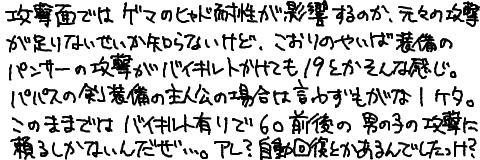 攻撃面では ゲマのヒャド耐性が影響するのか、元々の攻撃
が足りないせいか知らないけど、こおりのやいば装備の
パンサーの攻撃がバイキルトかけても19とかそんな感じ。
パパスの剣装備の主人公の場合は言わずもがな1ケタ。
このままでは バイキルト有りで60前後の 男の子の攻撃に
頼るしかないんだぜ…。アレ?自動回復とかあるんでしたっけ?